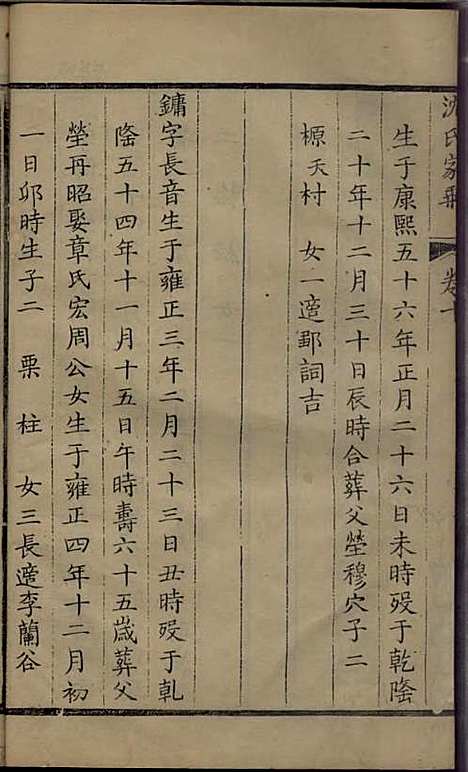 沈氏家乘 卷十
生于康熙五十六年正月二十六日未時歿于乾隆
二十年十二月三十日辰時合葬父塋穆穴子二
榞 天村 女一適鄞詞吉
鏞字長音生于雍正三年二月二十三日丑時歿于乹
隆五十四年十一月十五日午時壽六十五歲葬父
塋再昭娶章氏宏周公女生于雍正四年十二月初
一日卯時生子二 栗 柱 女三長適李蘭谷